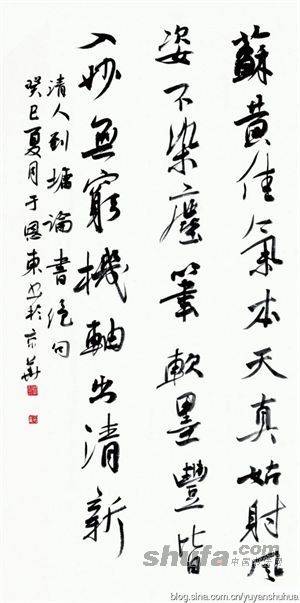 蘇黄佳氣本天真姑射風
姿不染塵筆軟墨豐皆
入妙無窮機軸出清新
清人刘墉論書绝句
癸巳夏月于恩東书於京華
shufa.com
blog.sina.com.cn/yuyanshuhua